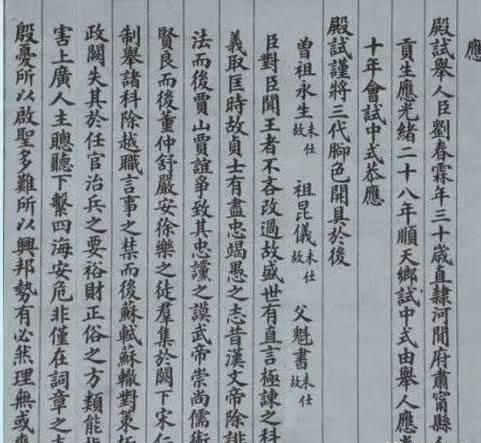 應
殿試舉人臣劉春霖年三十歲直隸河間府肅甯縣人
貢生應光緒二十八年順天鄉試中式由舉人應
十年會試中式恭應
殿試謹將三代腳色開具於後
曾祖永生未仕故 祖昆儀未仕故 父魁書未仕故
臣對臣聞王者不吝改過故盛世有直言極諫之科
義取匡時故貞士有盡忠竭愚之志昔漢文帝除誹
法而後賈山賈誼爭致其忠讜之謨武帝崇尚儒術
賢良而後董仲舒嚴安徐樂之徒羣集於闕下宋仁
制舉諸科除越職言事之禁而後蘇軾蘇轍對策極
政闕失其於任官治兵之要裕財正俗之方類能指
害上廣人主聰聽下繫四海安危非僅在詞章之末
殷憂所以啟聖多難所以興邦勢有必然理無或爽